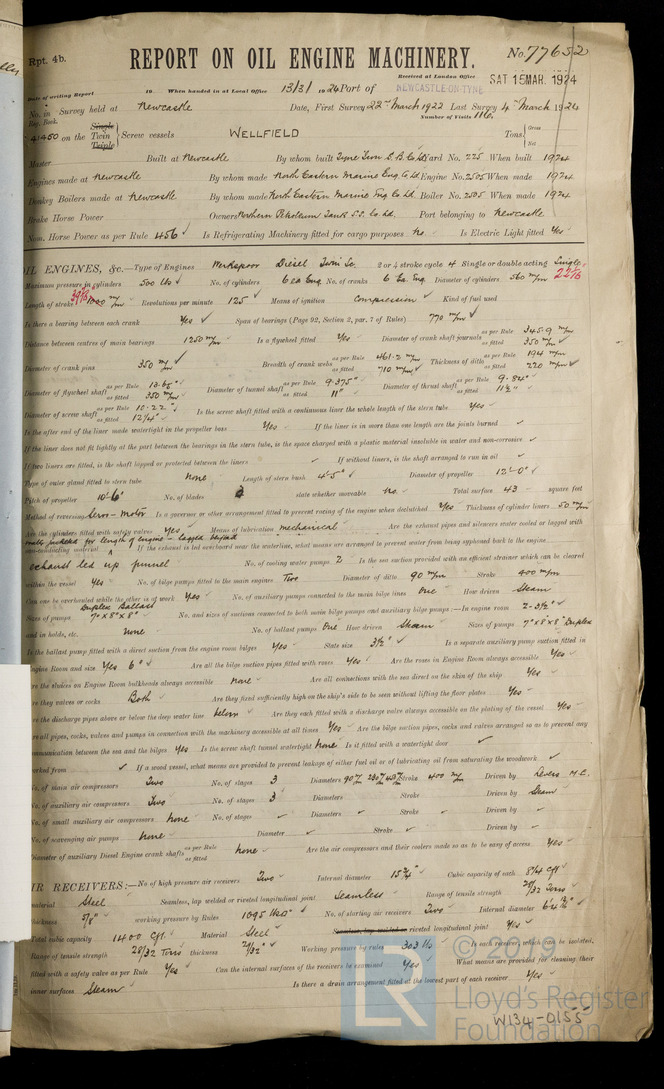 Rpt. 4b.
REPORT ON OIL ENGINE MACHINERY. No. 77652
Received at London Office SAT 15 MAR. 1924
Date of writing Report 19 When handed in at Local Office 13/3/1924 Port of NEWCASTLE-ON-TYNE
No. in Survey held at Newcastle Date, First Survey 22nd March 1922 Last Survey 4th March 1924
Reg. Book. Number of Visits 116
41450 on the Single Twin Triple Screw vessels WELLFIELD Tons Gross Net
Master Built at Newcastle By whom built Tyne Iron S.B. Co Ld Yard No. 225 When built 1924
Engines made at Newcastle By whom made North Eastern Marine Eng. Co Ld Engine No. 2505 When made 1924
Donkey Boilers made at Newcastle By whom made North Eastern Marine Eng Co Ld Boiler No. 2505 When made 1924
Brake Horse Power Owners Northern Petroleum Tank S.S. Co Ld. Port belonging to Newcastle
Nom. Horse Power as per Rule 456 ✓ Is Refrigerating Machinery fitted for cargo purposes no. Is Electric Light fitted Yes
OIL ENGINES, &c.—Type of Engines Werkspoor Diesel Twin Sc. 2 or 4 stroke cycle 4 Single or double acting Single
Maximum pressure in cylinders 500 lbs ✓ No. of cylinders 6 ea Eng. No. of cranks 6 Ea. Eng. Diameter of cylinders 560 m/m 22 1/16
Length of stroke 1000 m/m Revolutions per minute 125 ✓ Means of ignition Compression ✓ Kind of fuel used
Is there a bearing between each crank Yes ✓ Span of bearings (Page 92, Section 2, par. 7 of Rules) 770 m/m ✓
Distance between centres of main bearings 1250 m/m ✓ Is a flywheel fitted Yes ✓ Diameter of crank shaft journals as per Rule 345.9 m/m as fitted 350 m/m ✓
Diameter of crank pins 350 m/m ✓ Breadth of crank webs as per Rule 461.2 m/m as fitted 710 m/m ✓ Thickness of ditto as per Rule 194 m/m as fitted 220 m/m ✓
Diameter of flywheel shaft as per Rule 13.65" as fitted 350 m/m Diameter of tunnel shaft as per Rule 9.375" as fitted 11" Diameter of thrust shaft as per Rule 9.84" as fitted 11 1/2" ✓
Diameter of screw shaft as per Rule 10.22" as fitted 12 1/4" ✓ Is the screw shaft fitted with a continuous liner the whole length of the stern tube Yes ✓
Is the after end of the liner made watertight in the propeller boss Yes ✓ If the liner is in more than one length are the joints burned ✓
If the liner does not fit tightly at the part between the bearings in the stern tube, is the space charged with a plastic material insoluble in water and non-corrosive ✓
If two liners are fitted, is the shaft lapped or protected between the liners ✓ If without liners, is the shaft arranged to run in oil ✓
Type of outer gland fitted to stern tube None Length of stern bush 4'-5" ✓ Diameter of propeller 12'-0" ✓
Pitch of propeller 10'-6" No. of blades state whether moveable no. ✓ Total surface 43 ✓ square feet
Method of reversing Servo-Motor Is a governor or other arrangement fitted to prevent racing of the engine when declutched Yes Thickness of cylinder liners 50 m/m
Are the cylinders fitted with safety valves Yes ✓ Means of lubrication mechanical ✓ Are the exhaust pipes and silencers water cooled or lagged with
water jacketed for length of engine - lagged beyond
non-conducting material ✓ If the exhaust is led overboard near the waterline, what means are arranged to prevent water from being syphoned back to the engine
exhaust led up funnel No. of cooling water pumps 2 Is the sea suction provided with an efficient strainer which can be cleared
within the vessel Yes ✓ No. of bilge pumps fitted to the main engines Two Diameter of ditto 90 m/m Stroke 400 m/m
Can one be overhauled while the other is at work Yes ✓ No. of auxiliary pumps connected to the main bilge lines One ✓ How driven Steam
Duplex Ballast
Sizes of pumps 7" x 8" x 8" No. and sizes of suctions connected to both main bilge pumps and auxiliary bilge pumps:—In engine room 2-3 1/2" ✓
and in holds, etc. None No. of ballast pumps One How driven Steam Sizes of pumps 7" x 8" x 8" Duplex
Is the ballast pump fitted with a direct suction from the engine room bilges Yes ✓ State size 3 1/2" ✓ Is a separate auxiliary pump suction fitted in
Engine Room and size Yes 6" ✓ Are all the bilge suction pipes fitted with roses Yes ✓ Are the roses in Engine Room always accessible Yes ✓
Are the sluices on Engine Room bulkheads always accessible None ✓ Are all connections with the sea direct on the skin of the ship Yes ✓
Are they valves or cocks Both ✓ Are they fixed sufficiently high on the ship's side to be seen without lifting the floor plates Yes ✓
Are the discharge pipes above or below the deep water line below ✓ Are they each fitted with a discharge valve always accessible on the plating of the vessel Yes ✓
Are all pipes, cocks, valves and pumps in connection with the machinery accessible at all times Yes ✓ Are the bilge suction pipes, cocks and valves arranged so as to prevent any
communication between the sea and the bilges Yes Is the screw shaft tunnel watertight None Is it fitted with a watertight door ✓
worked from ✓ If a wood vessel, what means are provided to prevent leakage of either fuel oil or of lubricating oil from saturating the woodwork ✓
No. of main air compressors Two No. of stages 3 Diameters Stroke 400 m/m Driven by Levers M.E.
No. of auxiliary air compressors Two ✓ No. of stages 3 Diameters Stroke Driven by Steam ✓
No. of small auxiliary air compressors None ✓ No. of stages ✓ Diameters ✓ Stroke ✓ Driven by ✓
No. of scavenging air pumps None Diameter ✓ Stroke ✓ Driven by ✓
Diameter of auxiliary Diesel Engine crank shafts as per Rule as fitted None ✓ Are the air compressors and their coolers made so as to be easy of access Yes ✓
AIR RECEIVERS:—No. of high pressure air receivers Two ✓ Internal diameter 15 3/4" ✓ Cubic capacity of each 8 1/4 cft ✓
material Steel Seamless, lap welded or riveted longitudinal joint Seamless ✓ Range of tensile strength 28/32 Tons
thickness 5/8" ✓ working pressure by Rules 1095 lbs" ✓ No. of starting air receivers Two ✓ Internal diameter
Total cubic capacity 1400 Cft. Material Steel Seamless, lap welded or riveted longitudinal joint Yes ✓
Range of tensile strength 28/32 Tons thickness 29/32" ✓ Working pressure by rules 303 lbs Is each receiver, which can be isolated,
fitted with a safety valve as per Rule Yes ✓ Can the internal surfaces of the receivers be examined Yes ✓ What means are provided for cleaning their
inner surfaces Steam ✓ Is there a drain arrangement fitted at the lowest part of each receiver Yes ✓
© 2019
LR
Lloyd's Register
Foundation
W134-0155